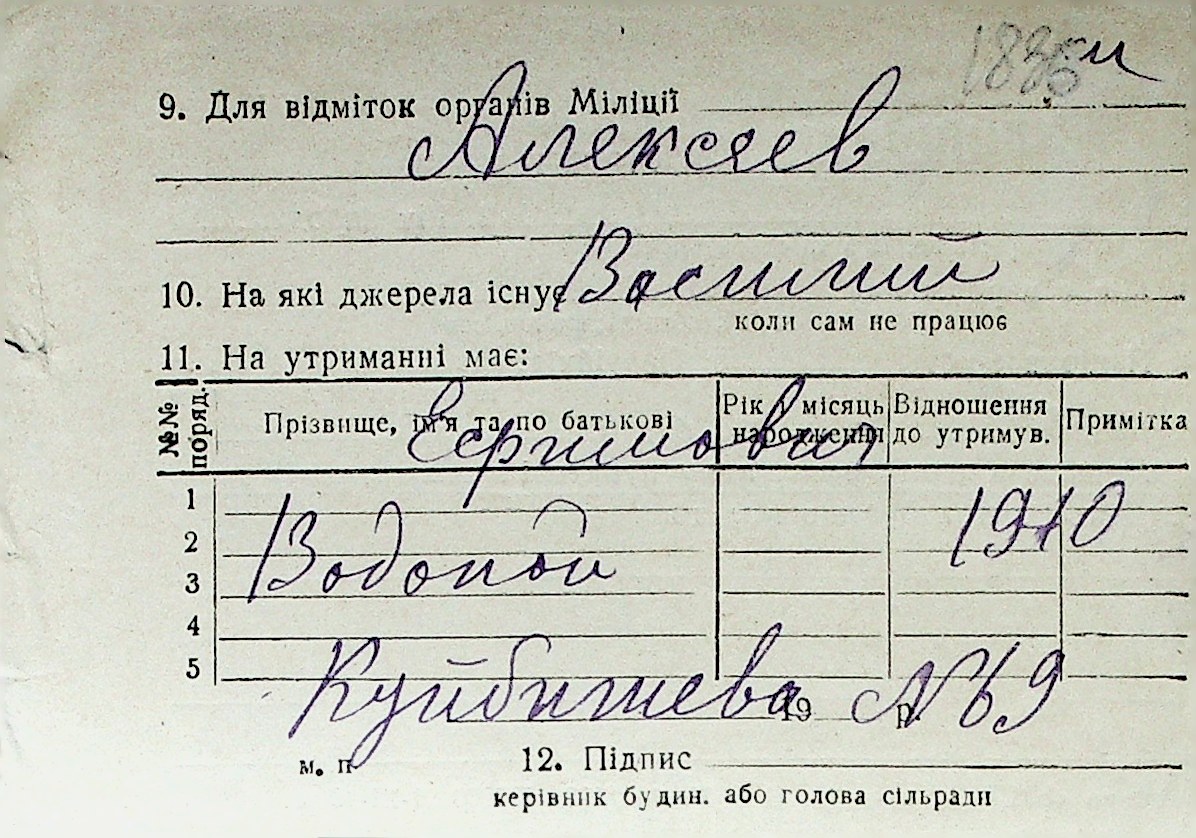 9. Для відміток органів Міліції
Алексеев
10. На які джерела існує Василий
коли сам не працює
11. На утриманні має:
№№ поряд. Прізвище, ім'я та по батькові Рік і місяць народження Відношення до утримув. Примітка
1
1910
2
Водопой
3
4
5
Куйбишева 19 р. №69
м. п
12. Підпис
керівник будин. або голова сільради